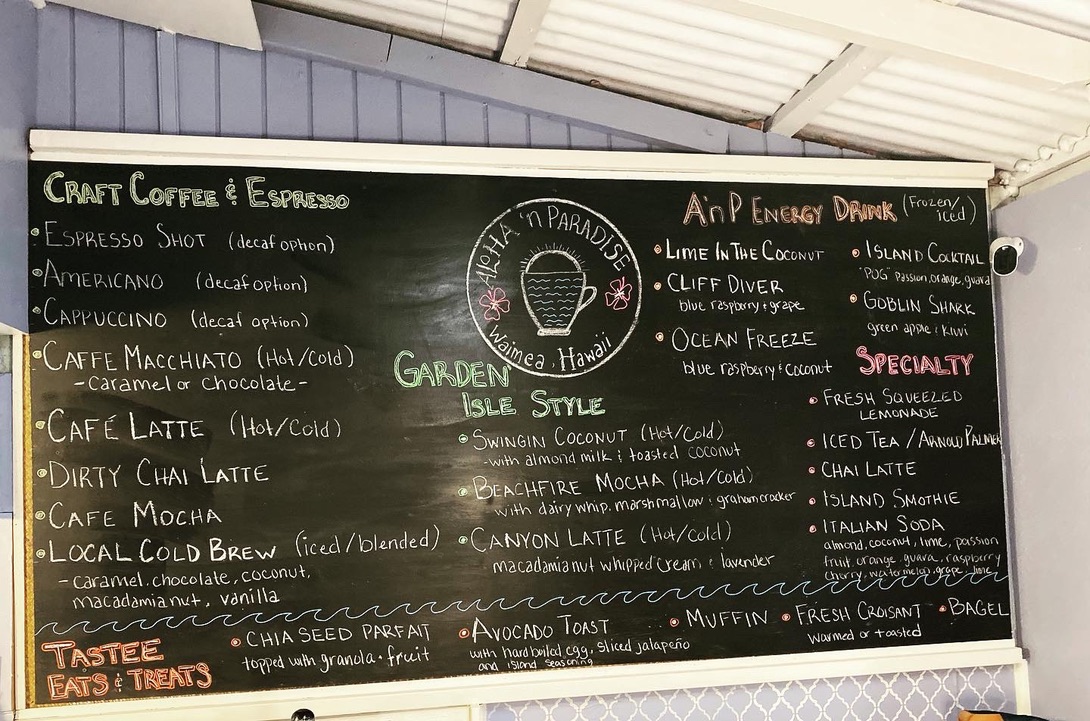 CRAFT COFFEE & ESPRESSO
ESPRESSO SHOT (decaf option)
AMERICANO (decaf option)
CAPPUCCINO (decaf option)
CAFFE MACCHIATO (Hot/Cold)
-caramel or chocolate-
CAFÉ LATTE (Hot/Cold)
DIRTY CHAI LATTE
CAFE MOCHA
LOCAL COLD BREW (iced/blended)
-caramel, chocolate, coconut,
macadamia nut, vanilla
ALOHA 'n PARADISE
Waimea, Hawaii
GARDEN
ISLE STYLE
SWINGIN COCONUT (Hot/Cold)
-with almond milk & toasted coconut
BEACHFIRE MOCHA (Hot/Cold)
with dairy whip, marshmallow & graham cracker
CANYON LATTE (Hot/Cold)
macadamia nut whipped cream & lavender
A'n P ENERGY DRINK (Frozen/
iced)
LIME IN THE COCONUT
CLIFF DIVER
blue raspberry & grape
OCEAN FREEZE
blue raspberry & coconut
ISLAND COCKTAIL
"POG" passion, orange, guava
GOBLIN SHARK
green apple & kiwi
SPECIALTY
FRESH SQUEEZED
LEMONADE
ICED TEA / ARNOLD PALMER
CHAI LATTE
ISLAND SMOTHIE
ITALIAN SODA
almond, coconut, lime, passion
fruit, orange, guava, raspberry
cherry, watermelon, grape, lime
TASTEE
EATS & TREATS
CHIA SEED PARFAIT
topped with granola & fruit
AVOCADO TOAST
with hard boiled egg, sliced jalapeño
and island seasoning
MUFFIN
FRESH CROISANT
warmed or toasted
BAGEL